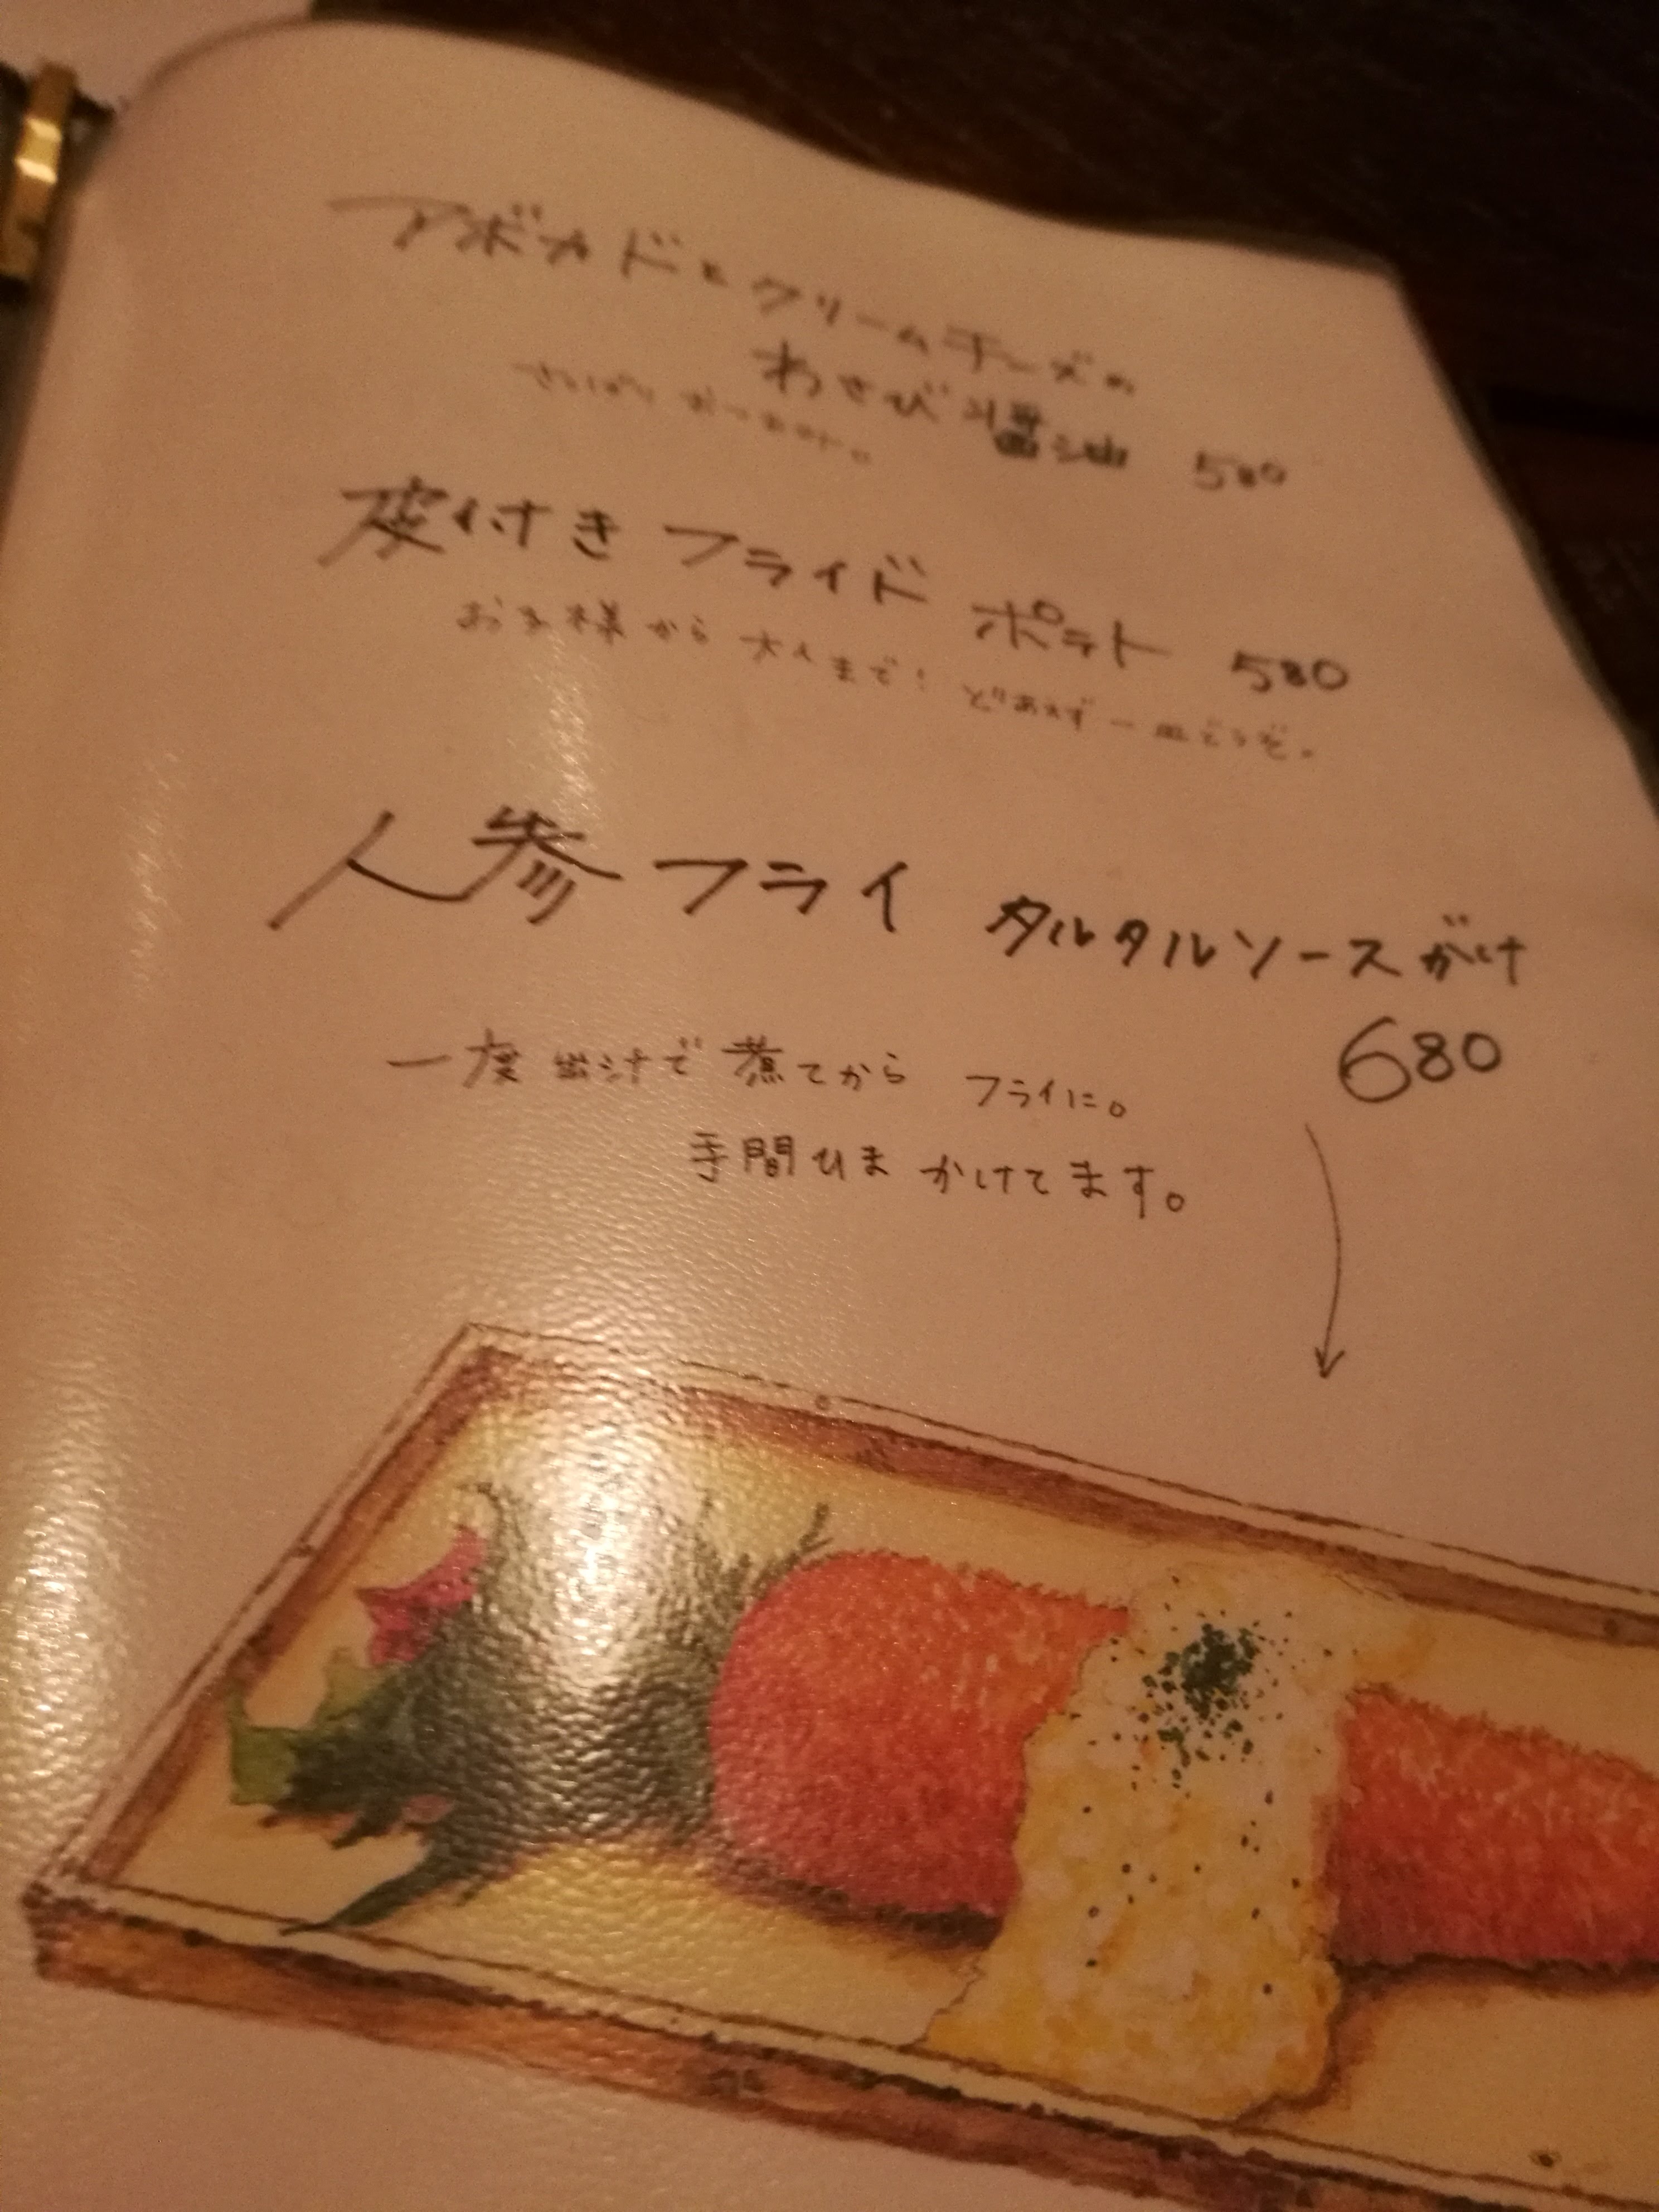 アボカドとクリームチーズの
わさび醤油 580
さっぱり おつまみ。
皮付き フライド ポテト 580
お子様から 大人まで! とりあえず一皿どうぞ。
人参フライ タルタルソースがけ
680
一度 出汁で 煮てから フライに。
手間ひま かけてます。